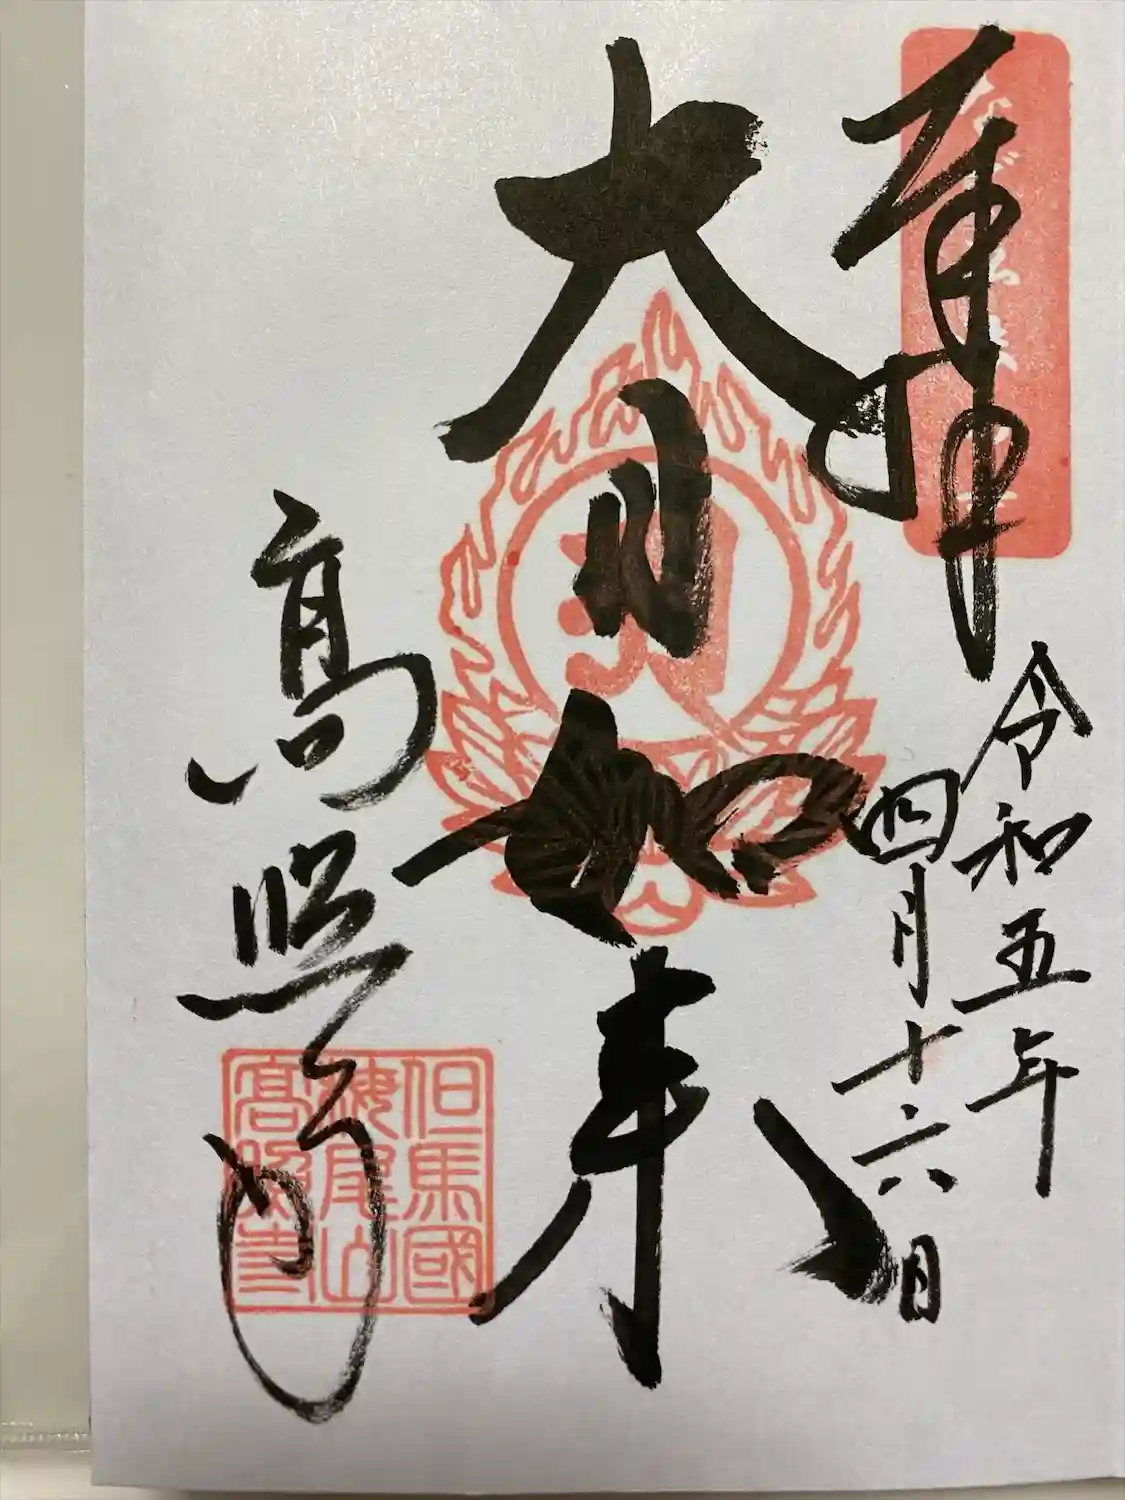 奉拝
令和五年
四月十六日
大日如来
高照寺
但馬國
棲尾山
高照寺